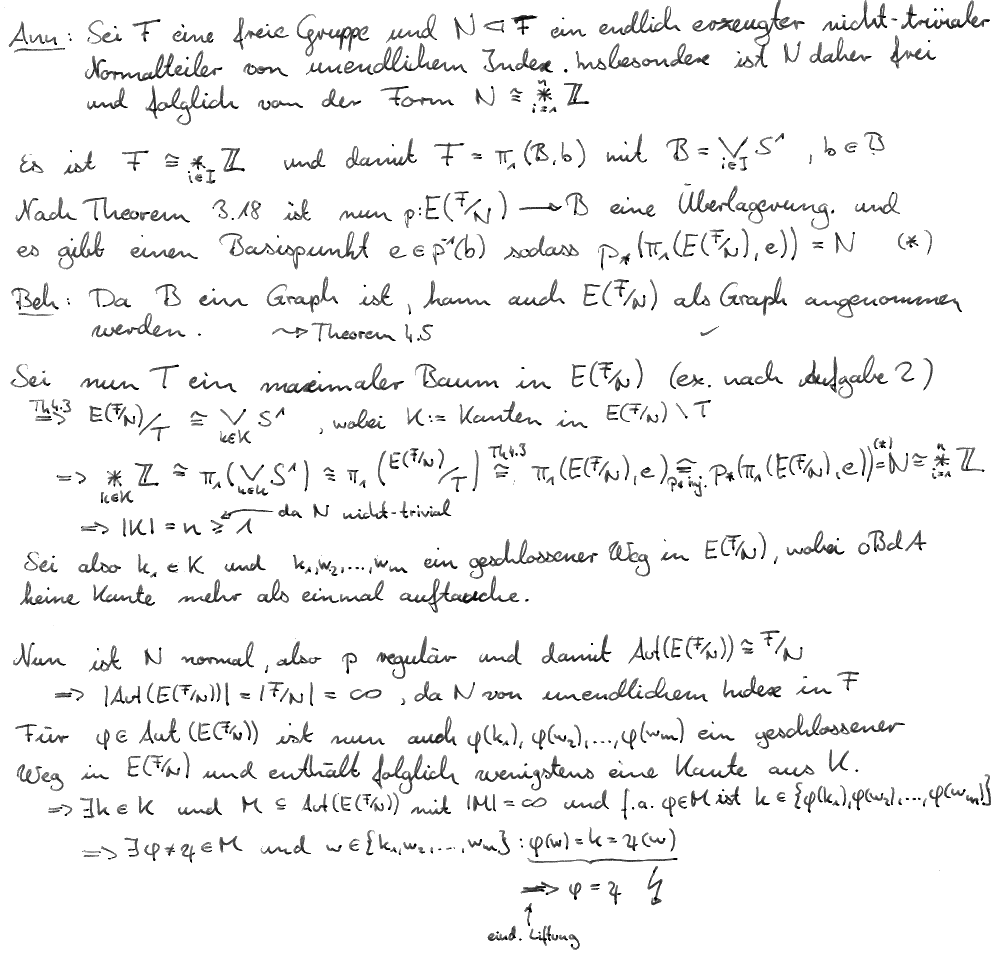 Ann: Sei F eine freie Gruppe und N ◁ F ein endlich erzeugter nicht-trivialer
Normalteiler von unendlichem Index. Insbesondere ist N daher frei
und folglich von der Form N ≅ *ⁿᵢ₌₁ ℤ
Es ist F ≅ *_{i∈I} ℤ und damit F = π₁(B,b) mit B = ⋁_{i∈I} S¹, b∈B
Nach Theorem 3.18 ist nun p: E(F/N) → B eine Überlagerung. und
es gibt einen Basispunkt e ∈ p⁻¹(b) sodass p_*(π₁(E(F/N), e)) = N (*)
Beh: Da B ein Graph ist, kann auch E(F/N) als Graph angenommen
werden. ⇝ Theorem 4.5 ✓
Sei nun T ein maximaler Baum in E(F/N) (ex. nach Aufgabe 2)
⇒^{Th 4.3} E(F/N)/T ≅ ⋁_{k∈K} S¹, wobei K := Kanten in E(F/N) \ T
⇒ *_{k∈K} ℤ ≅ π₁(⋁_{k∈K} S¹) ≅ π₁(E(F/N)/T) ≅^{Th 4.3} π₁(E(F/N), e) ≅_{p_* inj.} p_*(π₁(E(F/N), e)) =^{(*)} N ≅ *ⁿᵢ₌₁ ℤ
⇒ |K| = n ≥ 1 ← da N nicht-trivial
Sei also k₁ ∈ K und k₁, w₂, ..., w_m ein geschlossener Weg in E(F/N), wobei oBdA
keine Kante mehr als einmal auftauche.
Nun ist N normal, also p regulär und damit Aut(E(F/N)) ≅ F/N
⇒ |Aut(E(F/N))| = |F/N| = ∞, da N von unendlichem Index in F
Für φ ∈ Aut(E(F/N)) ist nun auch φ(k₁), φ(w₂), ..., φ(w_m) ein geschlossener
Weg in E(F/N) und enthält folglich wenigstens eine Kante aus K.
⇒ ∃k∈K und M ⊆ Aut(E(F/N)) mit |M| = ∞ und f.a. φ∈M ist k ∈ {φ(k₁), φ(w₂), ..., φ(w_m)}
⇒ ∃φ≠ψ∈M und w ∈ {k₁, w₂, ..., w_m} : φ(w) = k = ψ(w)
⇒ φ = ψ ↯
↑
eind. Liftung